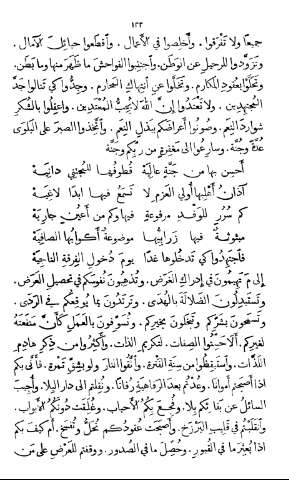 ١٣٣
جميعا ولا تفرقوا . وأخلصوا في الأعمال . وأقطعوا حبائل الآمال .
وتزودوا للرحيل عن الوطن . وأجتنبوا الفواحش ما ظهر منها وما بطن .
وتحلوا بعقود المكارم . وتخلوا عن أنتهاك المحارم . وجدوا كي تنالوا جد
المجتهدين . ولا تعتدوا إن الله لا يحب المعتدين . وأعقلوا بالشكر
شوارد النعم . وصونوا أعراضكم ببذل النعم . وأتخذوا الصبر على البلوى
عدة وجنة . وسارعوا الى مغفرة من ربكم وجنة
أحسن بها من جنة عالية قطوفها للمجتني دانية
آذان أهليها أولي العزم لا تسمع فيها ابدا لاغية
كم سرر للوفد مرفوعة فيها وكم من أعين جارية
مبثوثة فيها زرابيها موضوعة أكوابها الصافية
فأجتهدوا كي تدخلوها غدا يوم دخول الفرقة الناجية
الى م تهيمون في ادراك الغرض . وتذهبون نفوسكم في تحصيل العرض .
وتستبدلون الضلالة بالهدى . وترتدون بما يوقعكم في الردى .
وتسمحون بشركم وتبخلون بخيركم . وتسوفون بالعمل كأن منفعته
لغيركم . ألا حبسوا الصلات . لتكريم الذات . وأكثروا من ذكر هادم
اللذات . وأستيقظوا من سنة الفترة . وأتقوا النار ولو بشق تمرة . فأنى بكم
اذا أصبحتم أمواتا . وعدتم بعد الرفاهية رفاتا . ونقلتم الى دار البلا . وأجيب
السائل عن بنائكم بلا . وفجع بكم الأحباب . وغلقت دونكم الأبواب .
وأنقلبتم في قاليب البرزخ . وأصبحت عقودكم تحل وتفسخ . أم كيف بكم
اذا بعثر ما في القبور . وحصل ما في الصدور . ووقفتم للعرض على من